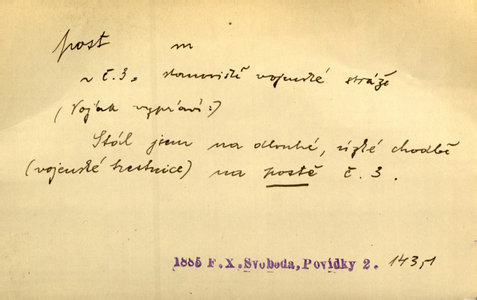 post m
~ č. 3. stanoviště vojenské stráže
(Voják vypráví:)
Stál jsem na dlouhé, úzké chodbě
(vojenské trestnice) na postě č. 3.
1885 F.X.Svoboda, Povídky 2. 143,1